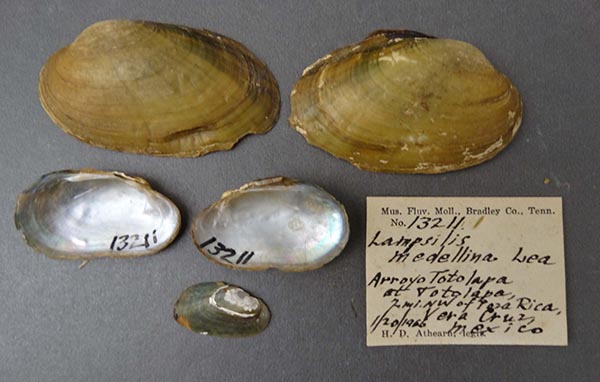 13211
13211
Mus. Fluv. Moll., Bradley Co., Tenn.
No. 13211
Lampsilis
medellina Lea
Arroyo Totolapa
at Totolapa,
2 mi. NW of Poza Rica,
1/20/1966 Vera Cruz,
Mexico
H. D. Athearn, legit.